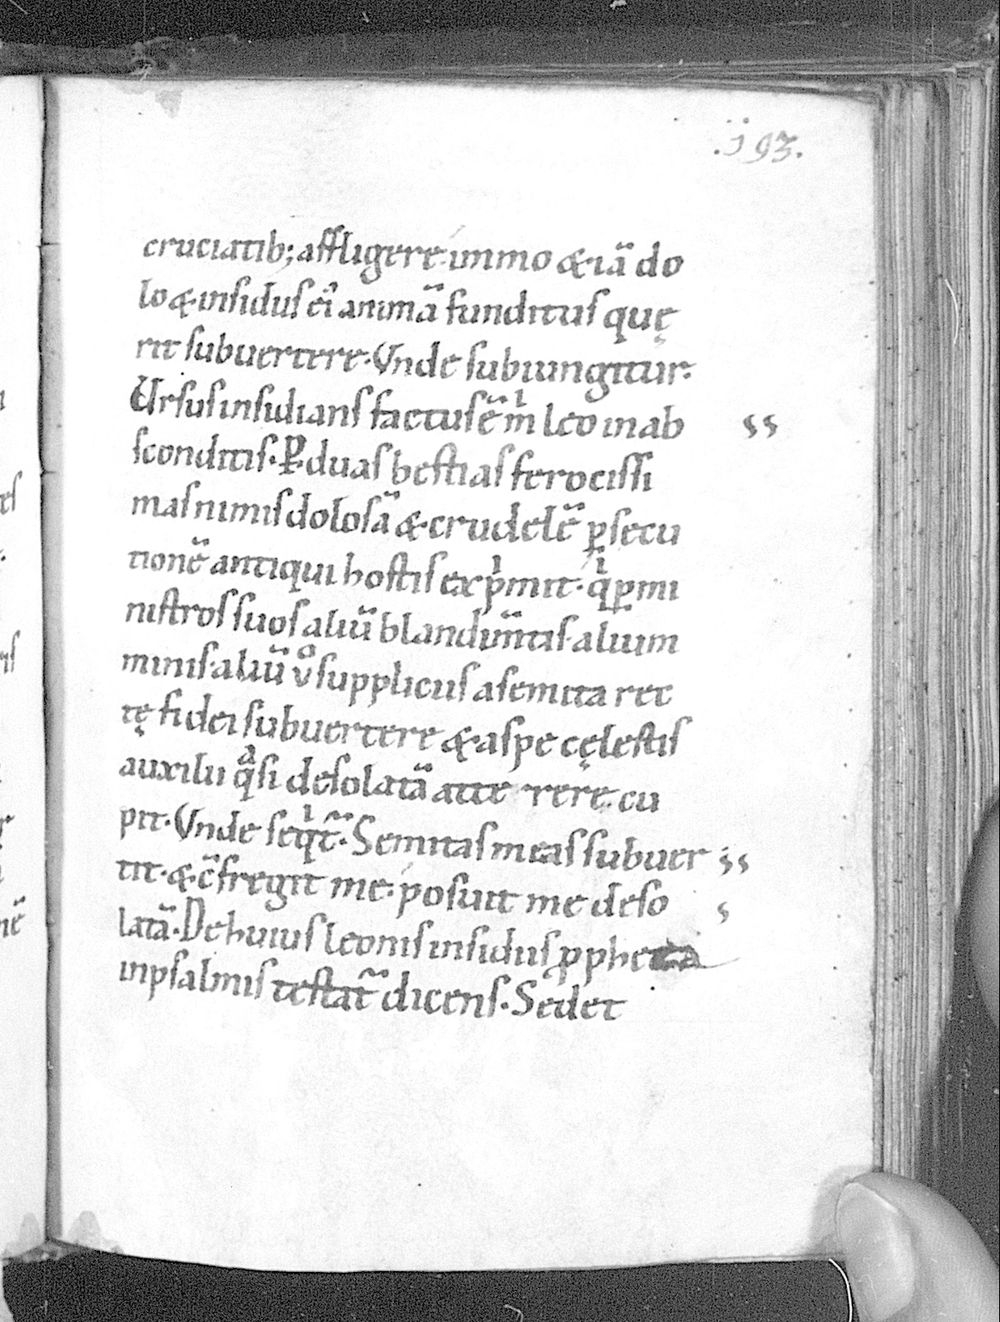 .193.
cruciatib; affligere immo & iã do
lo & insidiis ei animã funditus quę
rit subuertere. Vnde subiungitur.
Ursus insidians factus ẽ m̅ leo in ab
sconditis. P̲ duas bestias ferocissi
mas nimis dolosã & crudelẽ p̲secu
tionẽ antiqui hostis exp̍mit. q̍ p̲ mi
nistros suos aliũ blandim̅tis. aliũ m
minis. aliũ v̊ suppliciis a semita rec
tę fidei subuertere & a spe cęlestis
auxilii q̃si desolatã atte rere cu
pit. Vnde seq̍t̃. Semitas meas subuer
tit. & c̃fregit me. posuit me deso
latã. De huius leonis insidiis ꝓpheta
in psalmis testat̃ dicens. Sedet